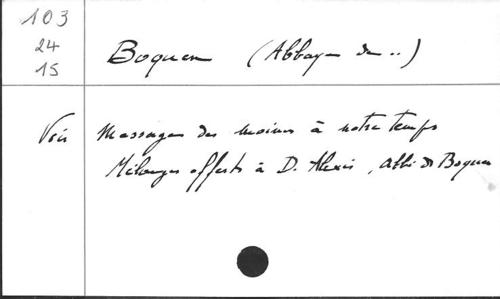 103
24
15
Boquen (Abbaye de ..)
Voir Messages des moines à notre temps
Mélanges offerts à D. Alexis, abbé de Boquen